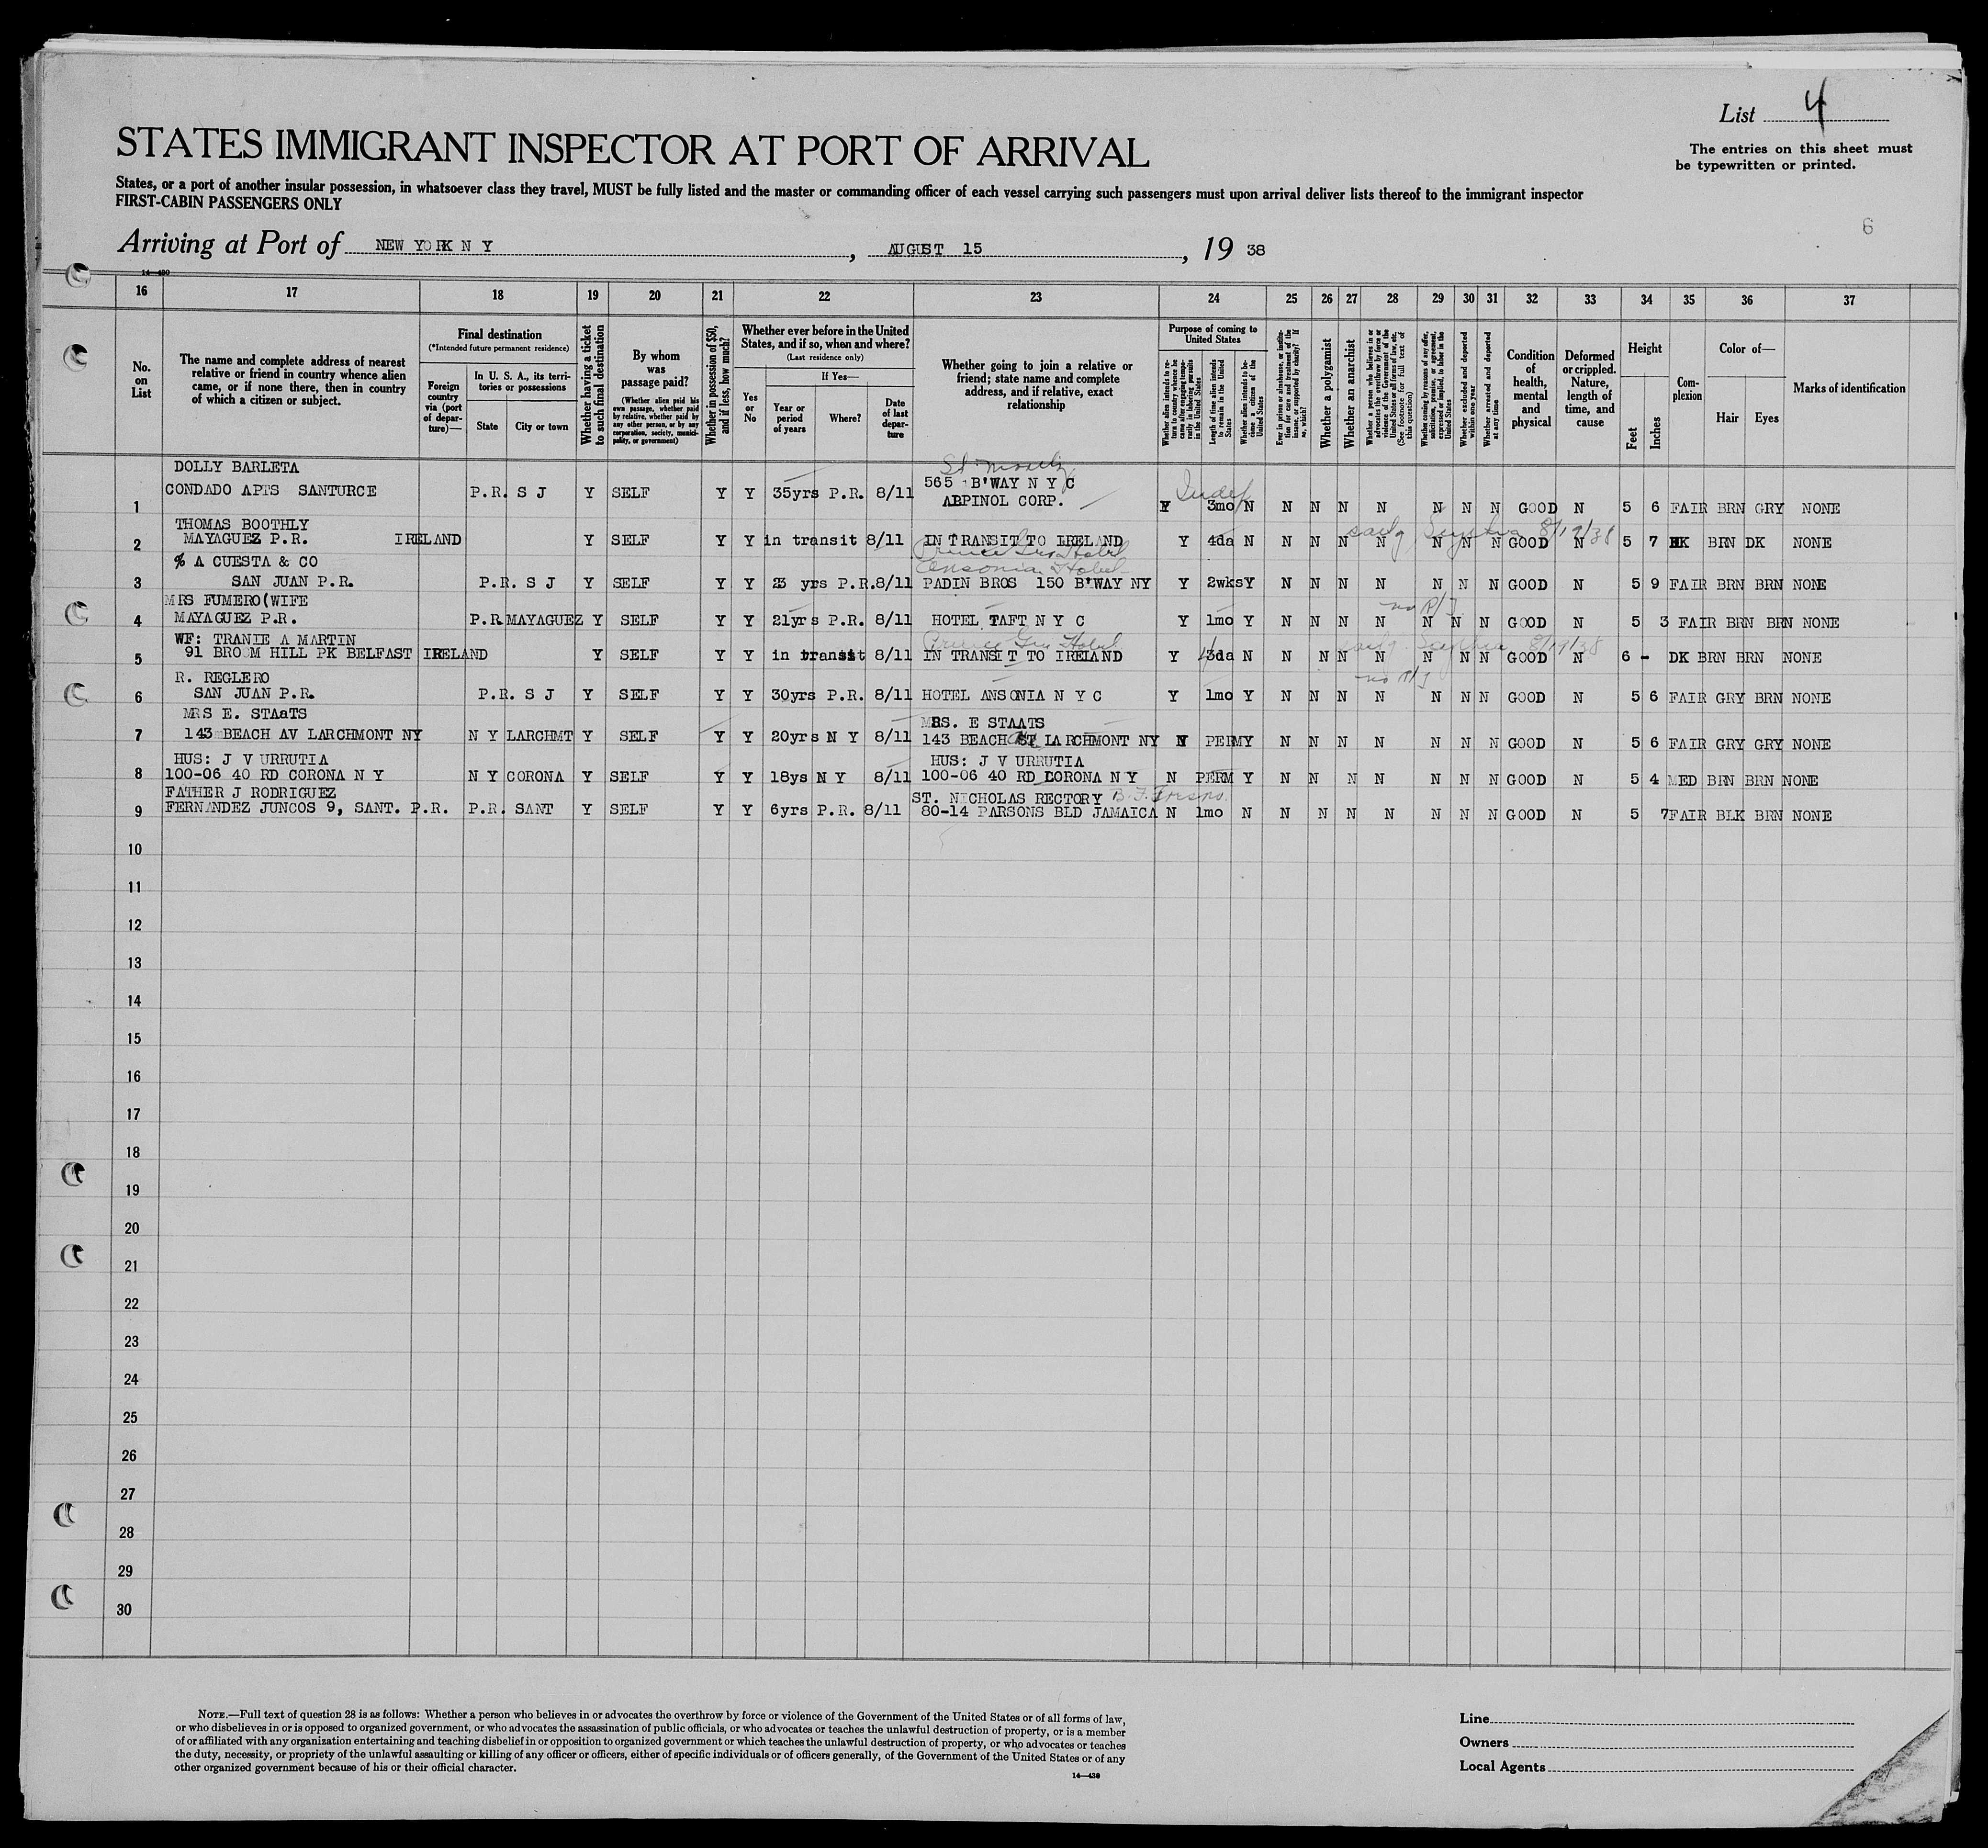 List 4
The entries on this sheet must
be typewritten or printed.
STATES IMMIGRANT INSPECTOR AT PORT OF ARRIVAL
States, or a port of another insular possession, in whatsoever class they travel, MUST be fully listed and the master or commanding officer of each vessel carrying such passengers must upon arrival deliver lists thereof to the immigrant inspector
FIRST-CABIN PASSENGERS ONLY
6
Arriving at Port of NEW YORK N Y, AUGUST 15, 19 38
14—430
16 17 18 19 20 21 22 23 24 25 26 27 28 29 30 31 32 33 34 35 36 37
No. on List
The name and complete address of nearest relative or friend in country whence alien came, or if none there, then in country of which a citizen or subject.
Final destination
(*Intended future permanent residence)
Foreign country via (port of departure)—
In U. S. A., its territories or possessions
State City or town
Whether having a ticket to such final destination
By whom was passage paid?
(Whether alien paid his own passage, whether paid by relative, whether paid by any other person, or by any corporation, society, municipality, or government)
Whether in possession of $50, and if less, how much?
Whether ever before in the United States, and if so, when and where?
(Last residence only)
Yes or No
If Yes—
Year or period of years Where? Date of last departure
Whether going to join a relative or friend; state name and complete address, and if relative, exact relationship
Purpose of coming to United States
Whether alien intends to return to country whence he came after engaging temporarily in laboring pursuits in the United States
Length of time alien intends to remain in the United States
Whether alien intends to become a citizen of the United States
Ever in prison or almshouse, or institution for care and treatment of the insane, or supported by charity? If so, which?
Whether a polygamist
Whether an anarchist
Whether a person who believes in or advocates the overthrow by force or violence of the Government of the United States or all forms of law, etc. (See footnote for full text of this question)
Whether coming by reasons of any offer, solicitation, promise, or agreement, expressed or implied, to labor in the United States
Whether excluded and deported within one year
Whether arrested and deported at any time
Condition of health, mental and physical
Deformed or crippled. Nature, length of time, and cause
Height
Feet Inches
Complexion
Color of—
Hair Eyes
Marks of identification
DOLLY BARLETA
1 CONDADO APTS SANTURCE P.R. S J Y SELF Y Y 35yrs P.R. 8/11 565 B'WAY N Y C
ALPINOL CORP. Y Indef 3mo N N N N N N N N GOOD N 5 6 FAIR BRN GRY NONE
THOMAS BOOTHLY
2 MAYAGUEZ P.R. IRELAND Y SELF Y Y in transit 8/11 IN TRANSIT TO IRELAND Y 4da N N N N N N N N GOOD N 5 7 DK BRN DK NONE
Scythia 8/19/38
Prince Geo Hotel
Ansonia Hotel
% A CUESTA & CO
3 SAN JUAN P.R. P.R. S J Y SELF Y Y 23 yrs P.R. 8/11 PADIN BROS 150 B'WAY NY Y 2wks Y N N N N N N N GOOD N 5 9 FAIR BRN BRN NONE
MRS FUMERO(WIFE
4 MAYAGUEZ P.R. P.R. MAYAGUEZ Y SELF Y Y 21yrs P.R. 8/11 HOTEL TAFT N Y C Y 1mo Y N N N N N N N GOOD N 5 3 FAIR BRN BRN NONE
WF: TRANIE A MARTIN
Prince Geo Hotel
Scythia 8/19/38
5 91 BROOM HILL PK BELFAST IRELAND Y SELF Y Y in transit 8/11 IN TRANSIT TO IRELAND Y 3da N N N N N N N N GOOD N 6 - DK BRN BRN NONE
R. REGLERO
6 SAN JUAN P.R. P.R. S J Y SELF Y Y 30yrs P.R. 8/11 HOTEL ANSONIA N Y C Y 1mo Y N N N N N N N GOOD N 5 6 FAIR GRY BRN NONE
MRS E. STAaTS MRS. E STAATS
7 143 BEACH AV LARCHMONT NY N Y LARCHMT Y SELF Y Y 20yrs N Y 8/11 143 BEACH ST LARCHMONT NY N PERM Y N N N N N N N GOOD N 5 6 FAIR GRY GRY NONE
HUS: J V URRUTIA HUS: J V URRUTIA
8 100-06 40 RD CORONA N Y N Y CORONA Y SELF Y Y 18ys N Y 8/11 100-06 40 RD CORONA N Y N PERM Y N N N N N N N GOOD N 5 4 MED BRN BRN NONE
FATHER J RODRIGUEZ ST. NICHOLAS RECTORY
9 FERNANDEZ JUNCOS 9, SANT. P.R. P.R. SANT Y SELF Y Y 6yrs P.R. 8/11 80-14 PARSONS BLD JAMAICA N 1mo N N N N N N N N GOOD N 5 7 FAIR BLK BRN NONE
10
11
12
13
14
15
16
17
18
19
20
21
22
23
24
25
26
27
28
29
30
NOTE.—Full text of question 28 is as follows: Whether a person who believes in or advocates the overthrow by force or violence of the Government of the United States or of all forms of law,
or who disbelieves in or is opposed to organized government, or who advocates the assassination of public officials, or who advocates or teaches the unlawful destruction of property, or is a member
of or affiliated with any organization entertaining and teaching disbelief in or opposition to organized government or which teaches the unlawful destruction of property, or who advocates or teaches
the duty, necessity, or propriety of the unlawful assaulting or killing of any officer or officers, either of specific individuals or of officers generally, of the Government of the United States or of any
other organized government because of his or their official character.
14—430
Line
Owners
Local Agents